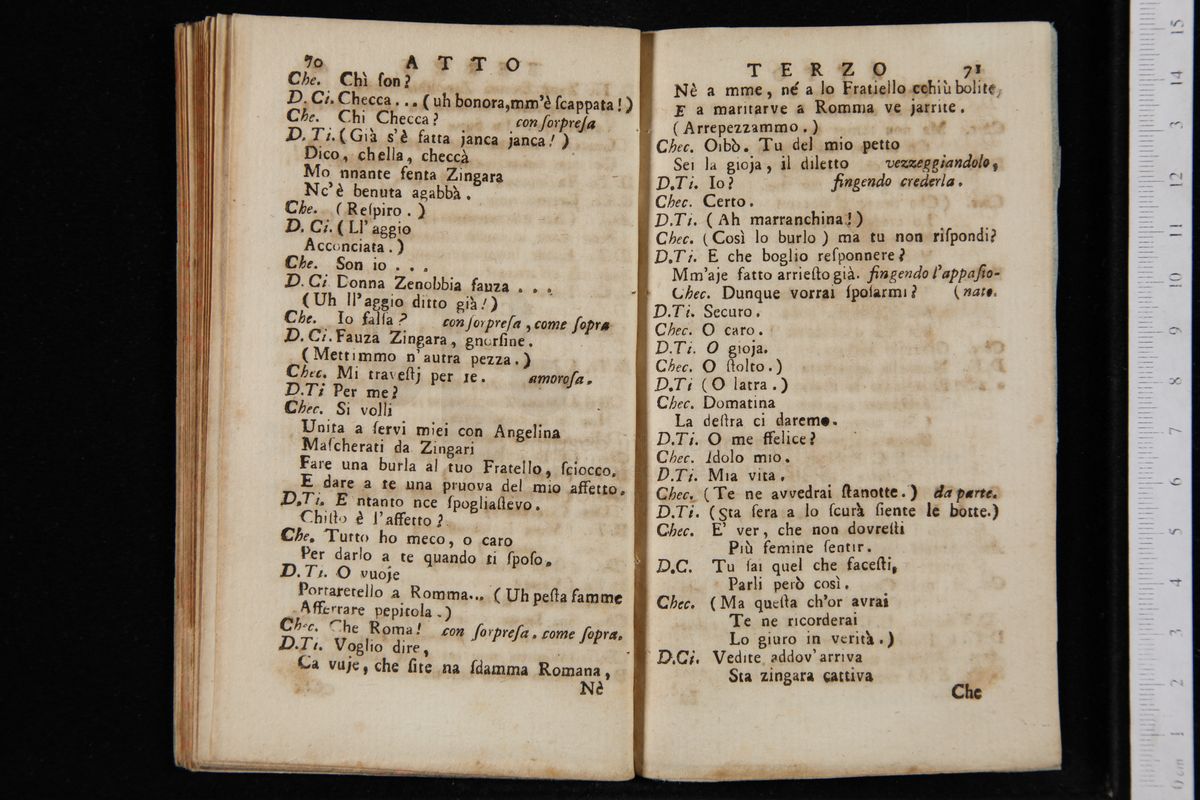 70 ATTO
Che. Chì ſon?
D. Ci. Checca... (uh bonora, mm'è ſcappata!)
Che. Chi Checca? con ſorpreſa
D. Ti. (Già s'è fatta janca janca!)
Dico, chella, checcà
Mo nnante fenta Zingara
Nc'è benuta agabbà.
Che. (Reſpiro.)
D. Ci. (Ll'aggio
Acconciata.)
Che. Son io . . .
D. Ci Donna Zenobbia fauza . . .
(Uh ll'aggio ditto già!)
Che. Io falſa? con ſorpreſa, come ſopra
D. Ci. Fauza Zingara, gnorſine.
(Mettimmo n'autra pezza.)
Chec. Mi traveſtj per te. amoroſa.
D.Ti Per me?
Chec. Si volli
Unita a ſervi miei con Angelina
Maſcherati da Zingari
Fare una burla al tuo Fratello, ſciocco.
E dare a te una pruova del mio affetto.
D.Ti. E ntanto nce ſpogliaſtevo.
Chiſto è l'affetto?
Che. Tutto ho meco, o caro
Per darlo a te quando ti ſpoſo.
D.Ti. O vuoje
Portaretello a Romma... (Uh peſta famme
Afferrare pepitola.)
Chec. Che Roma! con ſorpreſa. come ſopra.
D.Ti. Voglio dire,
Ca vuje, che ſite na ſdamma Romana,
Nè
TERZO 71
Nè a mme, né a lo Fratiello cchiù bolite,
E a maritarve a Romma ve jarrite.
(Arrepezzammo.)
Chec. Oibò. Tu del mio petto
Sei la gioja, il diletto vezzeggiandolo,
D.Ti. Io? fingendo crederla.
Chec. Certo.
D.Ti. (Ah marranchina!)
Chec. (Così lo burlo) ma tu non riſpondi?
D.Ti. E che boglio reſponnere?
Mm'aje fatto arrieſto già. fingendo l'appaſio-
Chec. Dunque vorrai ſpoſarmi? (nato.
D.Ti. Securo.
Chec. O caro.
D.Ti. O gioja.
Chec. O ſtolto.)
D.Ti (O latra.)
Chec. Domatina
La deſtra ci daremo.
D.Ti. O me ffelice?
Chec. Idolo mio.
D.Ti. Mia vita.
Chec. (Te ne avvedrai ſtanotte.) da parte.
D.Ti. (Sta ſera a lo ſcurà ſiente le botte.)
Chec. E' ver, che non dovreſti
Più femine ſentir.
D.C. Tu ſai quel che faceſti,
Parli però così.
Chec. (Ma queſta ch'or avrai
Te ne ricorderai
Lo giuro in verità.)
D.Ci. Vedite addov'arriva
Sta zingara cattiva
Che